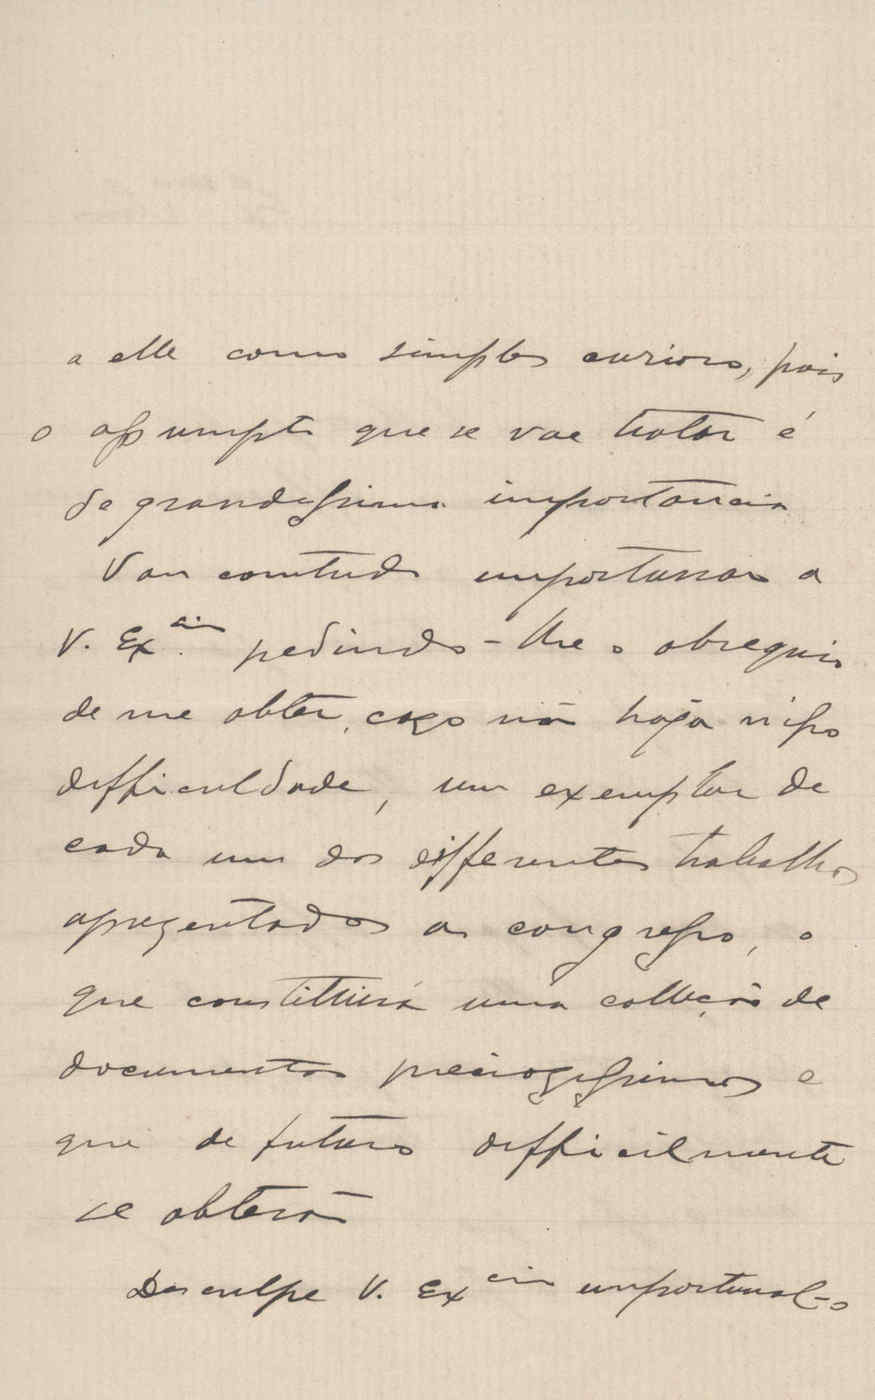 a elle como simples curioso, pois
o assumpto que se vae tratar é
de grandessima importancia
Vou comtudo importunar a
V. Ex.cia pedindo-lhe o obsequio
de me obter, cazo não haja nisso
difficuldade, um exemplar de
cada um dos differentes trabalhos
aprezentados ao congresso, o
que constittuirá uma collecção de
documentos preciozissimos e
que de futuro difficilmente
se obterão
Desculpe V. Excia importunal-o